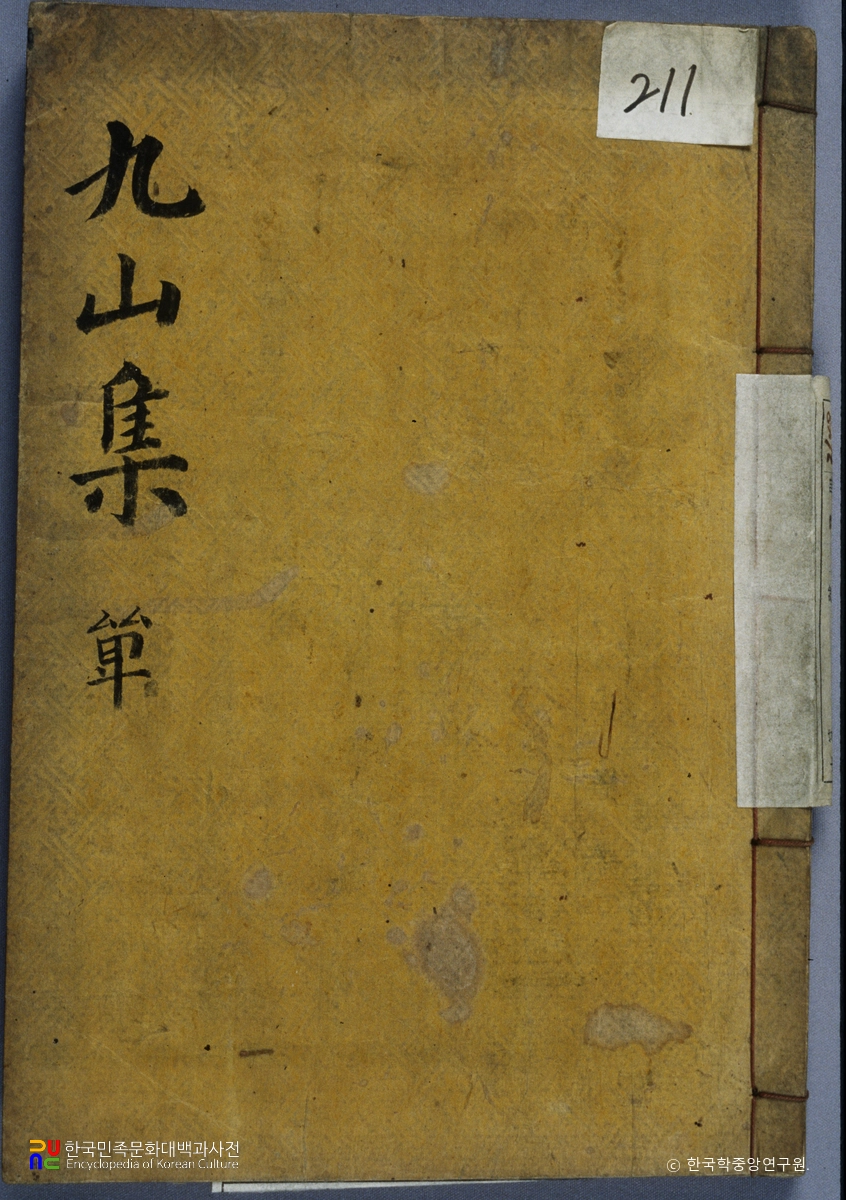 211
九山集 單
한국민족문화대백과사전
Encyclopedia of Korean Culture
ⓒ 한국학중앙연구원